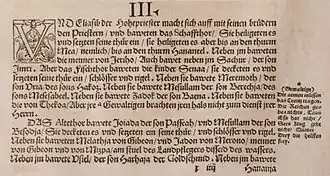 III.
VND Eliasib der Hohepriester macht sich auff mit seinen brüdern
den Priestern / vnd baweten das Schafthor / Sie heiligeten es
vnd setzten seine thür ein / sie heiligeten es aber bis an den thurn
Mea / nemlich / bis an den thurn Hananeel. Neben jm baweten
die menner von Jeriho / Auch bawet neben jm Sachur / der son
Imri. Aber das Fischthor baweten die kinder Senaa / sie deckten es vnd
setzten seine thür ein / schlösser vnd rigel. Neben sie bawete Meremoth /
son Vria / des sons Hakoz. Neben sie bawete Mesullam der son Berechja / des
sons Mesesabeel. Neben sie bawete Zadok der son Baena. Neben sie baweten
die von Thekoa / Aber jre Gewaltigen brachten jren hals nicht zum dienst jrer
Herrn.
DAS Altethor bawete Joiada der son Passeah / vnd Mesullam der son
Besodja / Sie deckten es vnd setzten ein seine thür / vnd schlösser vnd rigel.
Neben sie bawete Melathja von Gibeon / vnd Jadon von Merono / menner
von Gibeon vnd von Mizpa / am stuel des Landpflegers disseid des wassers.
Neben jm bawete Usiel / der son Harhaja der Goldschmid. Neben jm bawete
Hananja
(Gewaltige)
Die armen müssen
das Creutz tragen.
Die Reichen